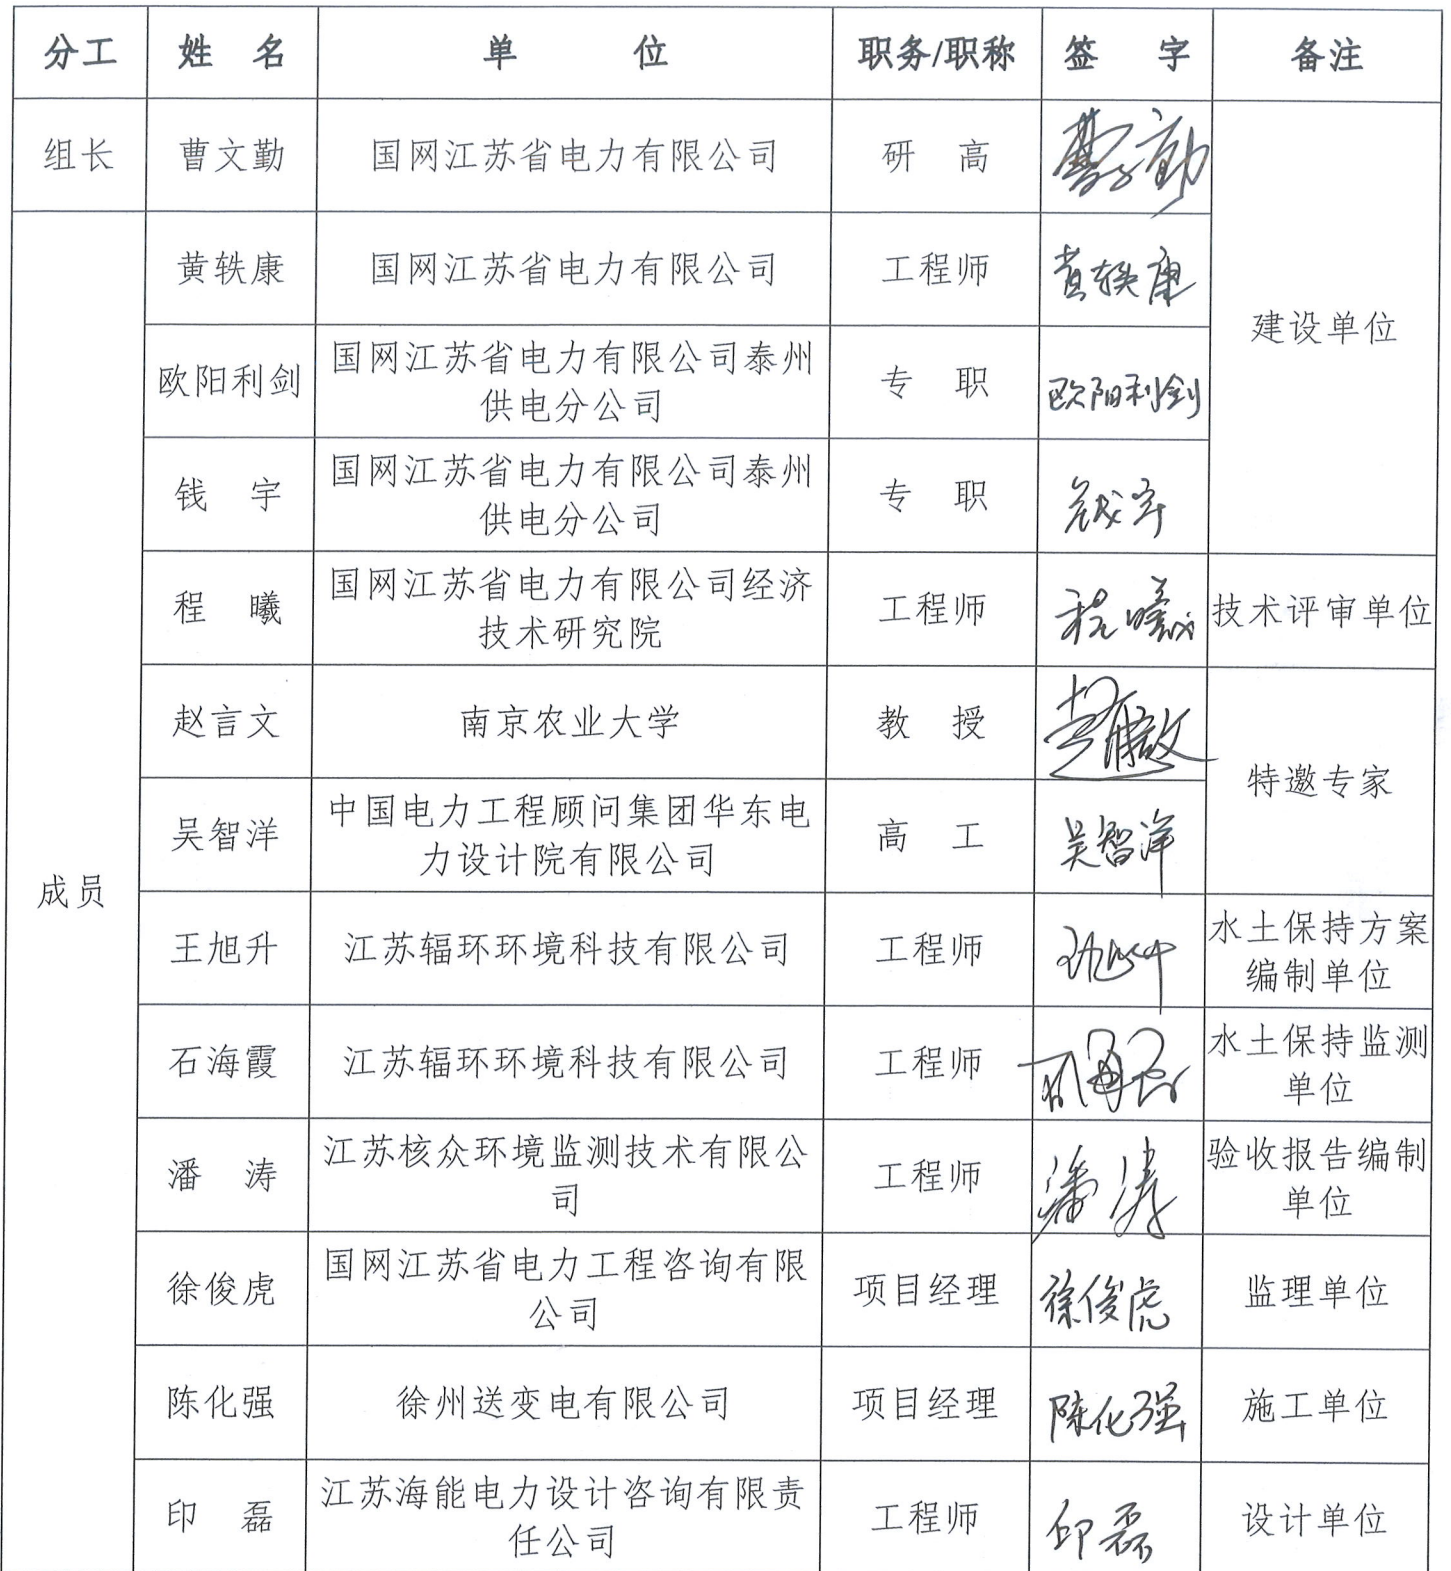 分工 姓 名 单 位 职务/职称 签 字 备注
组长 曹文勤 国网江苏省电力有限公司 研 高 曹文勤
黄轶康 国网江苏省电力有限公司 工程师 黄轶康
建设单位
欧阳利剑 国网江苏省电力有限公司泰州
供电分公司 专 职 欧阳利剑
钱 宇 国网江苏省电力有限公司泰州
供电分公司 专 职 钱宇
程 曦 国网江苏省电力有限公司经济
技术研究院 工程师 程曦 技术评审单位
赵言文 南京农业大学 教 授 赵言文
特邀专家
吴智洋 中国电力工程顾问集团华东电
力设计院有限公司 高 工 吴智洋
成员
王旭升 江苏辐环环境科技有限公司 工程师 王旭升 水土保持方案
编制单位
石海霞 江苏辐环环境科技有限公司 工程师 石海霞 水土保持监测
单位
潘 涛 江苏核众环境监测技术有限公
司 工程师 潘涛 验收报告编制
单位
徐俊虎 国网江苏省电力工程咨询有限
公司 项目经理 徐俊虎 监理单位
陈化强 徐州送变电有限公司 项目经理 陈化强 施工单位
印 磊 江苏海能电力设计咨询有限责
任公司 工程师 印磊 设计单位